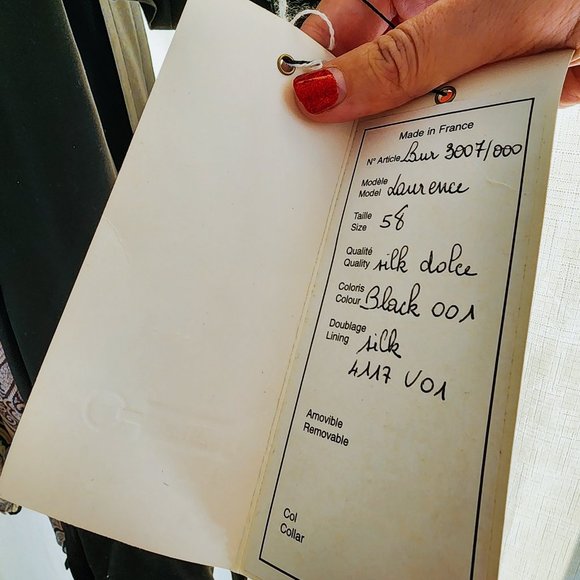 Made in France
N° Article Bur 3007/000
Modèle
Model Laurence
Taille
Size 58
Qualité
Quality silk dolce
Coloris
Colour Black 001
Doublage
Lining silk
4117 V01
Amovible
Removable
Col
Collar